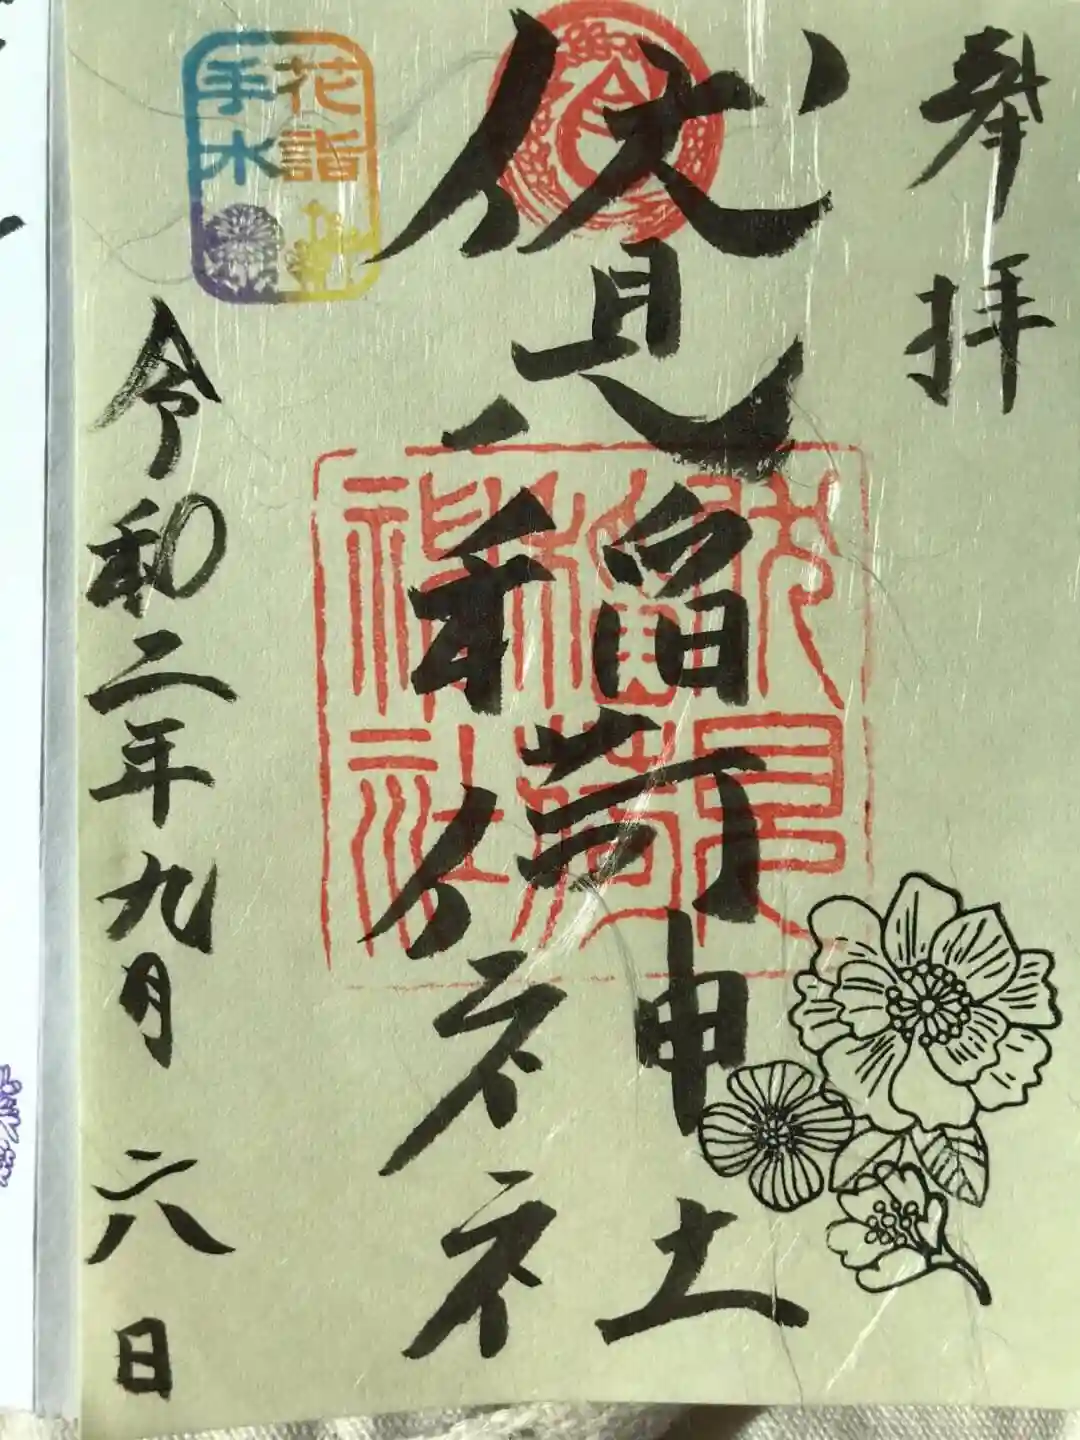 奉拝
伏見稲荷神社
伏見
稲荷
神社
花詣
手水
令和二年九月六日